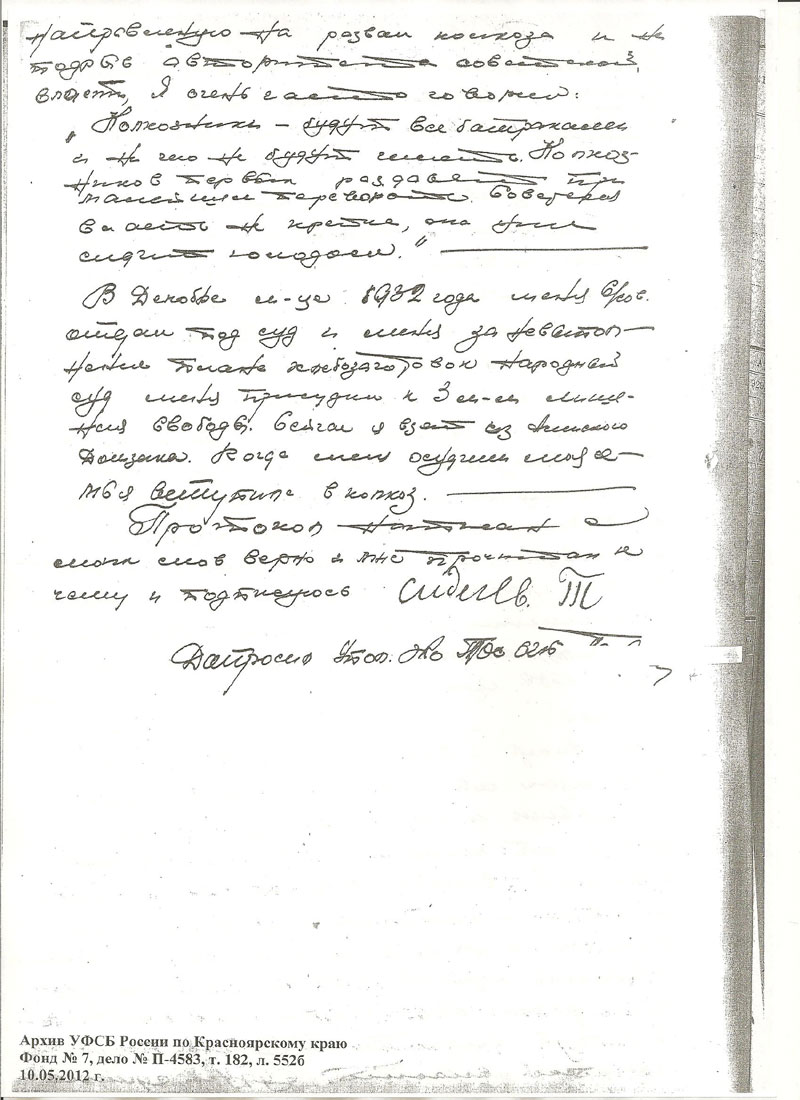 направленную на развал колхоза и на
подрыв авторитета советской
власти, я очень часто говорил:
„Колхозники – будут все батраками
и ни чего не будут иметь. Колхоз-
ников первым раздавят при
малейшем перевороте. Советская
власть не крепка, она
сидит
В Декабре м-це 1932 года меня
отдали под суд и меня за невыпол-
нения плана хлебозаготовок народный
суд меня присудил к 3 лише-
ния свободы. Сейчас я взят из Ачинского
Домзака. Когда меня осудили моя се-
мья вступила в колхоз.
Протокол написан с
моих слов верно и мне прочитан к
чему и подписуюсь
Допросил Упол.
Архив УФСБ России по Красноярскому краю
Фонд № 7, дело № П-4583, т. 182, л. 552б
10.05.2012 г.